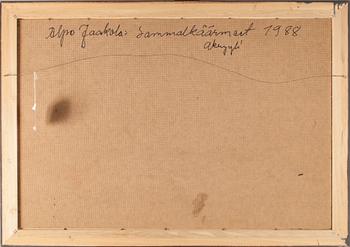 Alpo Jaakola: Sammalkäärmeet 1988
akryyli